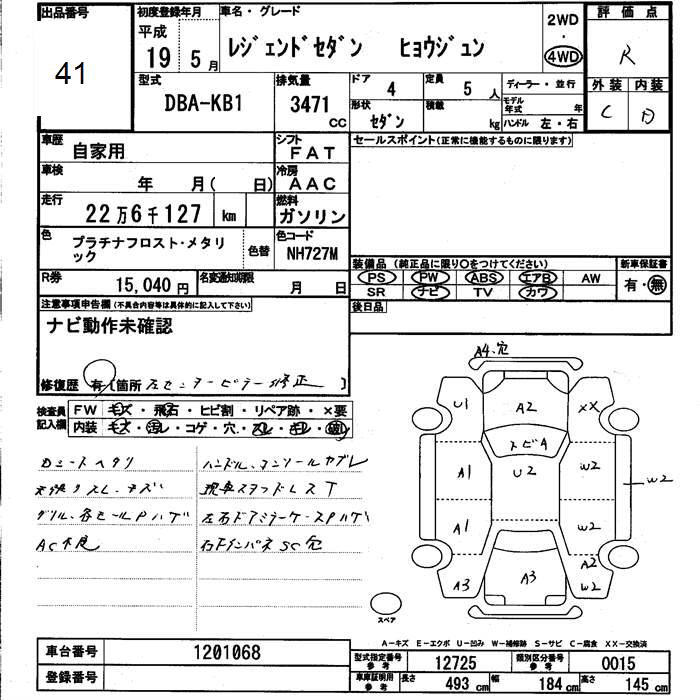 出品番号
41
初度登録年月
平成
19 5月
車名・グレード
レジェンドセダン ヒョウジュン
2WD
・
4WD
評価点
R
外装 内装
C D
型式
DBA-KB1
排気量
3471
CC
ドア
4
定員
5 人
ディーラー・並行
形状
セダン
積載
kg
モデル年式
年
ハンドル 左・右
車歴
自家用
シフト
FAT
セールスポイント(正常に機能するものに限ります)
車検
年 月( 日)
冷房
AAC
走行
22万6千127 km
燃料
ガソリン
色
プラチナフロスト・メタリ
ック
色替
色コード
NH727M
装備品 (純正品に限り○をつけてください)
新車保証書
PS PW ABS エアB AW
有・無
SR ナビ TV カワ
R券
15,040円
名変通知期限
月 日
後日品
注意事項申告欄(不具合内容等は具体的に記入して下さい)
ナビ動作未確認
修復歴 有(箇所 左センターピラー修正 )
検査員
記入欄
FW キズ・飛石・ヒビ割・リペア跡・×要
内装 キズ・汚レ・コゲ・穴・スレ・キレ・破レ
Dシートヘタリ
天張りスレ、キズ
グリル、各モールPハゲ
AC不良
ハンドル、コンソールカブレ
現車スタッドレスT
左右ドアミラーケースPハゲ
右下インパネSC穴
A4,穴
U1
A2
XX
トビA
A1
U2
W2
W2
A1
W2
A3
A3
A2
W2
スペア
A-キズ E-エクボ U-凹み W-補修跡 S-サビ C-腐食 XX-交換済
車台番号
1201068
登録番号
型式指定番号
参考
12725
類別区分番号
参考
0015
車庫証明用
参考
長さ
493 cm
幅
184 cm
高さ
145 cm